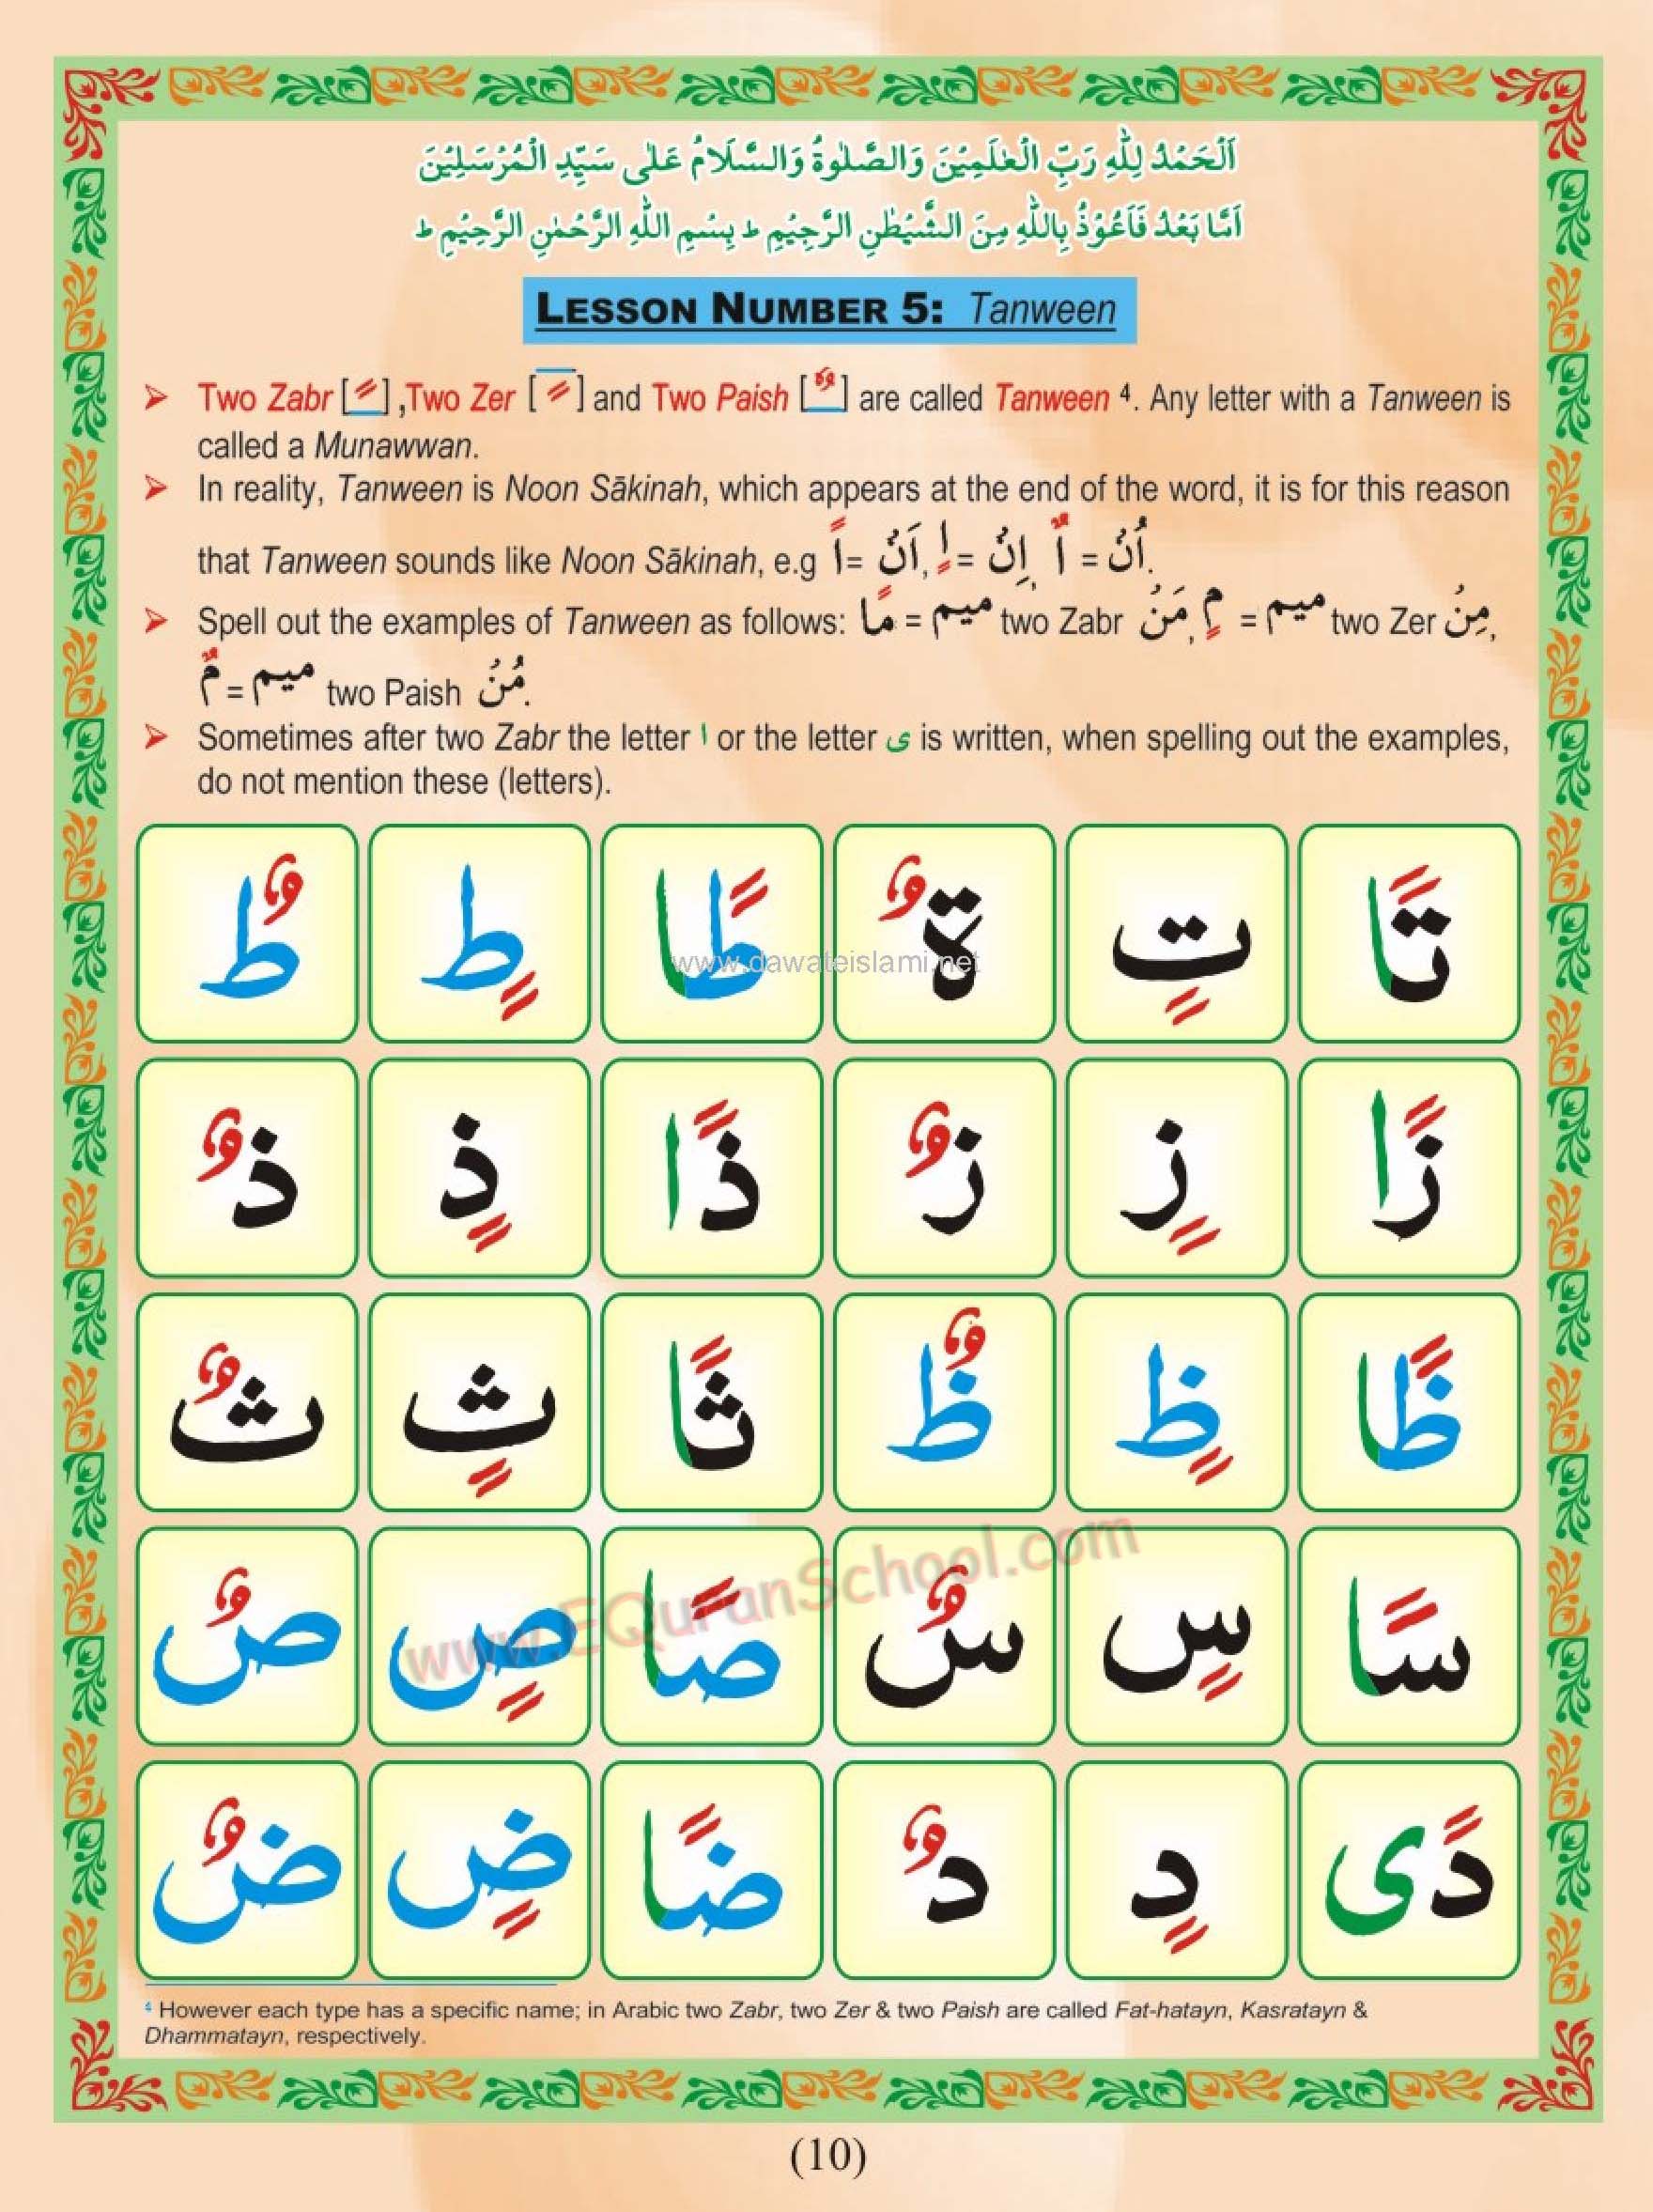 اَلْحَمْدُ لِلّٰهِ رَبِّ الْعٰلَمِيْنَ وَالصَّلٰوةُ وَالسَّلَامُ عَلٰى سَيِّدِ الْمُرْسَلِيْنَ
اَمَّا بَعْدُ فَاَعُوْذُ بِاللّٰهِ مِنَ الشَّيْطٰنِ الرَّجِيْمِ ط بِسْمِ اللّٰهِ الرَّحْمٰنِ الرَّحِيْمِ ط
LESSON NUMBER 5: Tanween
➢ Two Zabr [ ً ] ,Two Zer [ ٍ ] and Two Paish [ ٌ ] are called Tanween ⁴. Any letter with a Tanween is
called a Munawwan.
➢ In reality, Tanween is Noon Sākinah, which appears at the end of the word, it is for this reason
that Tanween sounds like Noon Sākinah, e.g اً = اَنْ, اٍ = اِنْ, اٌ = اُنْ.
➢ Spell out the examples of Tanween as follows: مًا = میم two Zabr مَنْ, مٍ = میم two Zer مِنْ,
مٌ = میم two Paish مُنْ.
➢ Sometimes after two Zabr the letter ا or the letter ى is written, when spelling out the examples,
do not mention these (letters).
تًا تٍ ةٌ طًا طٍ طٌ
www.dawateislami.net
زًا زٍ زٌ ذًا ذٍ ذٌ
ظًا ظٍ ظٌ ثًا ثٍ ثٌ
www.EQuranSchool.com
سًا سٍ سٌ صًا صٍ صٌ
دًى دٍ دٌ ضًا ضٍ ضٌ
⁴ However each type has a specific name; in Arabic two Zabr, two Zer & two Paish are called Fat-hatayn, Kasratayn &
Dhammatayn, respectively.
(10)